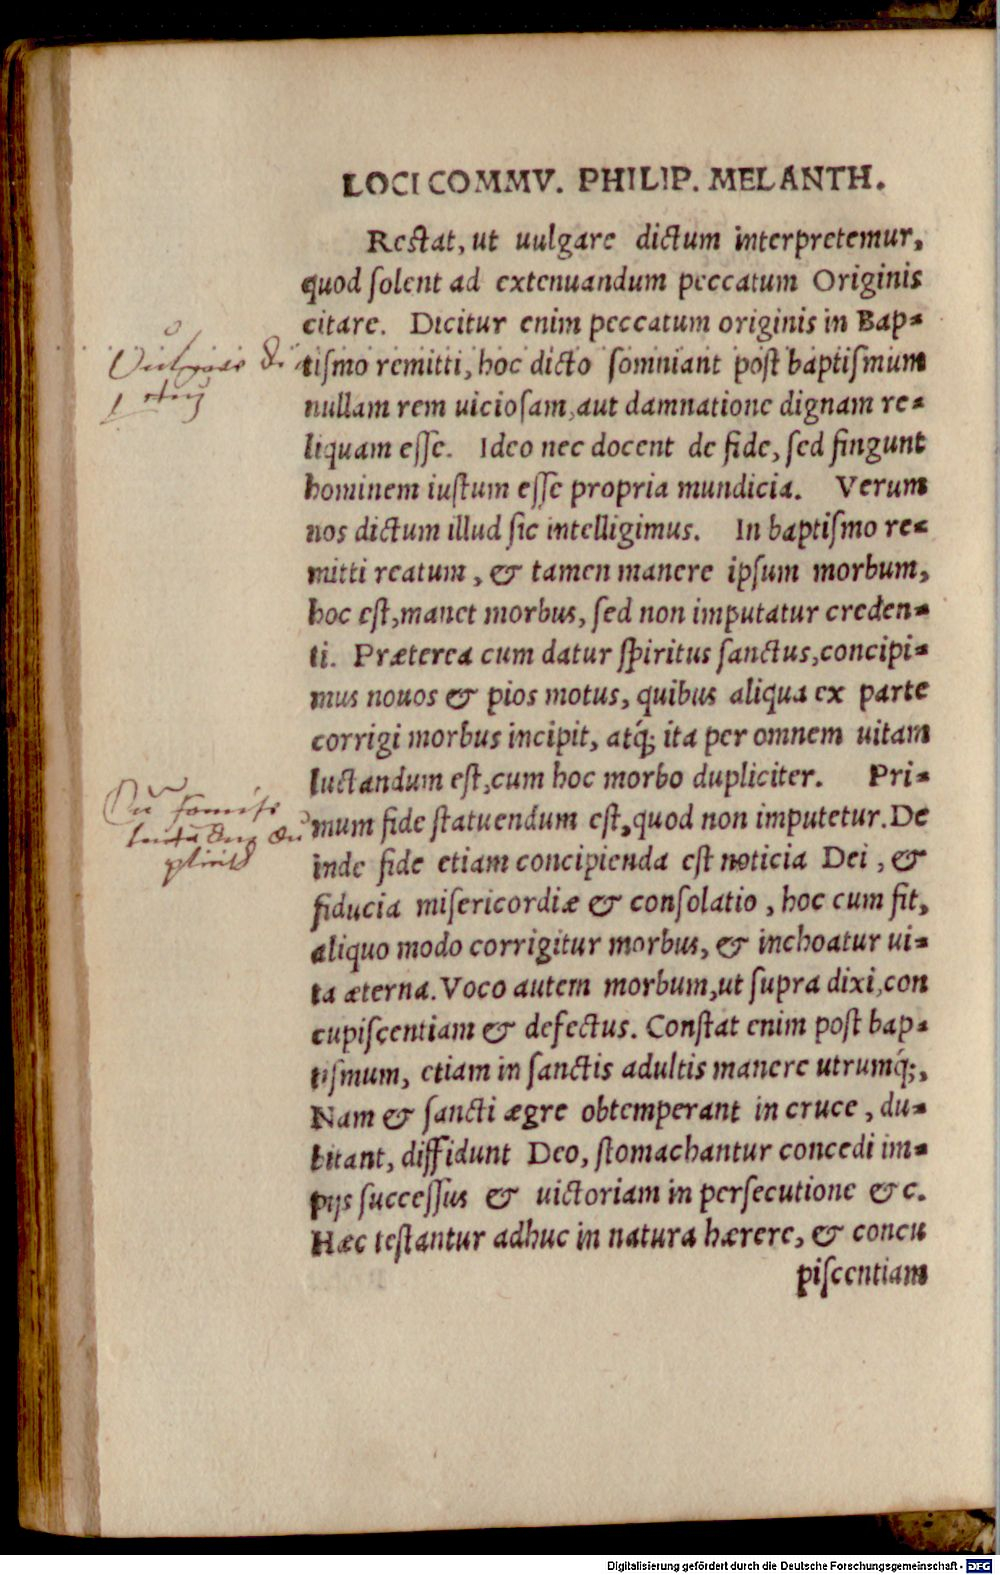 LOCI COMMV. PHILIP. MELANTH.
Restat, ut uulgare dictum interpretemur,
quod ſolent ad extenuandum peccatum Originis
citare. Dicitur enim peccatum originis in Bap⸗
tiſmo remitti, hoc dicto ſomniant poſt baptiſmum
nullam rem uicioſam, aut damnatione dignam re⸗
liquam eſſe. Ideo nec docent de fide, ſed fingunt
hominem iuſtum eſſe propria mundicia. Verum
nos dictum illud ſic intelligimus. In baptiſmo re⸗
mitti reatum, & tamen manere ipſum morbum,
hoc eſt, manet morbus, ſed non imputatur creden⸗
ti. Præterea cum datur ſpiritus ſanctus, concipi⸗
mus nouos & pios motus, quibus aliqua ex parte
corrigi morbus incipit, atq́; ita per omnem uitam
luctandum eſt, cum hoc morbo dupliciter. Pri⸗
mum fide ſtatuendum eſt, quod non imputetur. De
inde fide etiam concipienda eſt noticia Dei, &
fiducia miſericordiæ & conſolatio, hoc cum fit,
aliquo modo corrigitur morbus, & inchoatur ui⸗
ta æterna. Voco autem morbum, ut ſupra dixi, con
cupiſcentiam & defectus. Conſtat enim poſt bap⸗
tiſmum, etiam in ſanctis adultis manere utrumq́;,
Nam & ſancti ægre obtemperant in cruce, du⸗
bitant, diffidunt Deo, ſtomachantur concedi im⸗
pijs ſucceſſus & uictoriam in perſecutione &c.
Hæc teſtantur adhuc in natura hærere, & concu
piſcentiam
Digitalisierung gefördert durch die Deutsche Forschungsgemeinschaft - DFG